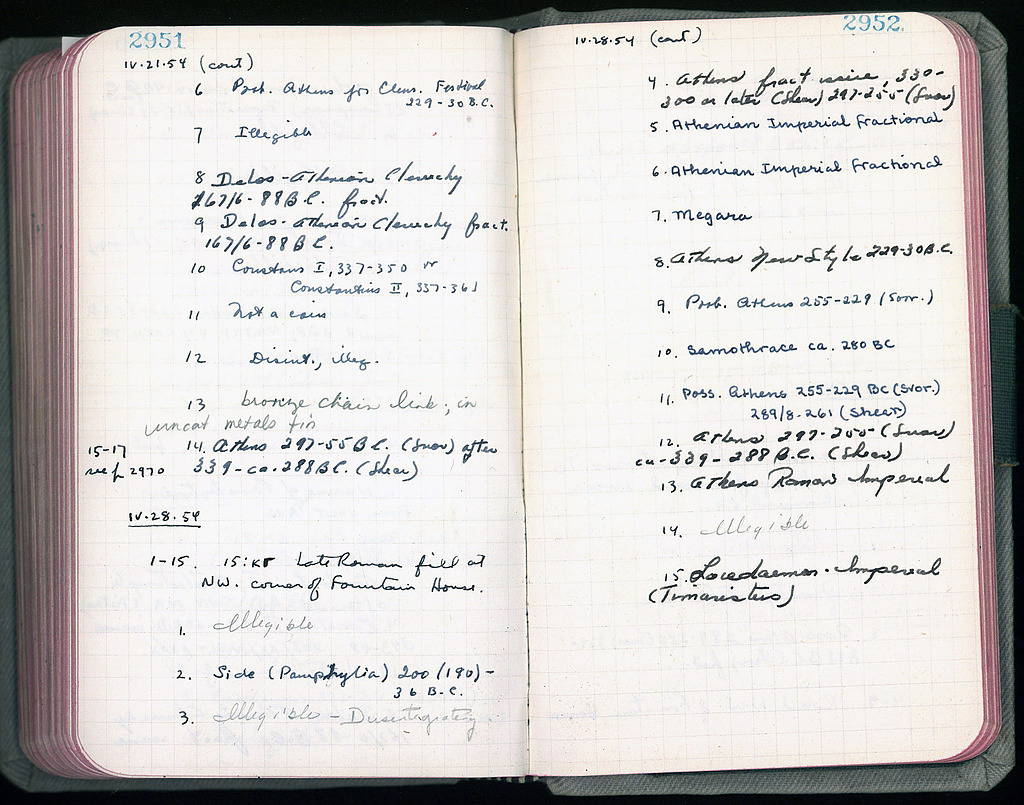 2951
IV.21.54 (cont)
6 Prob. Athens for Eleus. Festival
229-30 B.C.
7 Illegible
8 Delos-Athenian Cleruchy
167/6-88 B.C. fract.
9 Delos-Athenian Cleruchy fract.
167/6-88 B.C.
10 Constans I, 337-350 or
Constantius II, 337-361
11 Not a coin
12 Disint., illeg.
13 bronze chain link; in
uncat metals tin
14. Athens 297-55 B.C. (Svor) after
339-ca. 288 B.C. (Shear)
15-17
see p 2970
IV.28.54
1-15. 15:KΓ Late Roman fill at
NW. corner of Fountain House.
1. Illegible
2. Side (Pamphylia) 200 (190)-
36 B.C.
3. Illegible - Disintegrating
2952
IV.28.54 (cont)
4. Athens fract issue, 330-
300 or later (Shear) 297-255 (Svor)
5. Athenian Imperial Fractional
6. Athenian Imperial Fractional
7. Megara
8. Athens New Style 229-30 B.C.
9. Prob. Athens 255-229 (Svor.)
10. Samothrace ca. 280 BC
11. Poss. Athens 255-229 BC (Svor.)
289/8-261 (Shear)
12. Athens 297-255 (Svor)
ca-339-288 B.C. (Shear)
13. Athens Roman Imperial
14. Illegible
15. Lacedaemon. Imperial
(Timaristos)